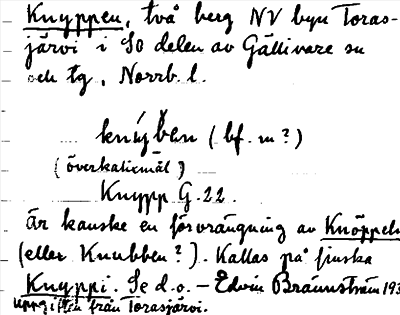 Knyppen, två berg NV byn Toras-
järvi i SO delen av Gällivare sn
och tg, Norrb. l.
knýben (bf. m?)
(överkalixmål)
Knypp G.22.
Är kanske en förvrängning av Knöppeln
(eller Knubben?). Kallas på finska
Knyppi. Se d.o. — Edvin Brännström 193
Uppgiften från Torasjärvi.